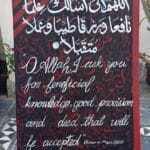 اللهم إني أسألك علما
نافعا ورزقا طيبا وعملا
متقبلا
O Allah, I ask you
for beneficial
knowledge, good provision
and deed that will
be accepted